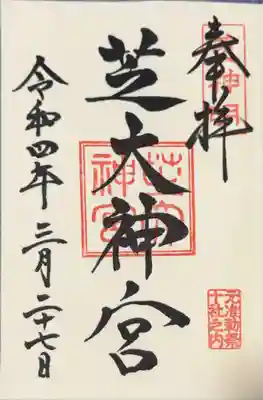 奉拝
芝大神宮
芝大神宮
令和四年三月二十七日
元准勅祭
十社之内